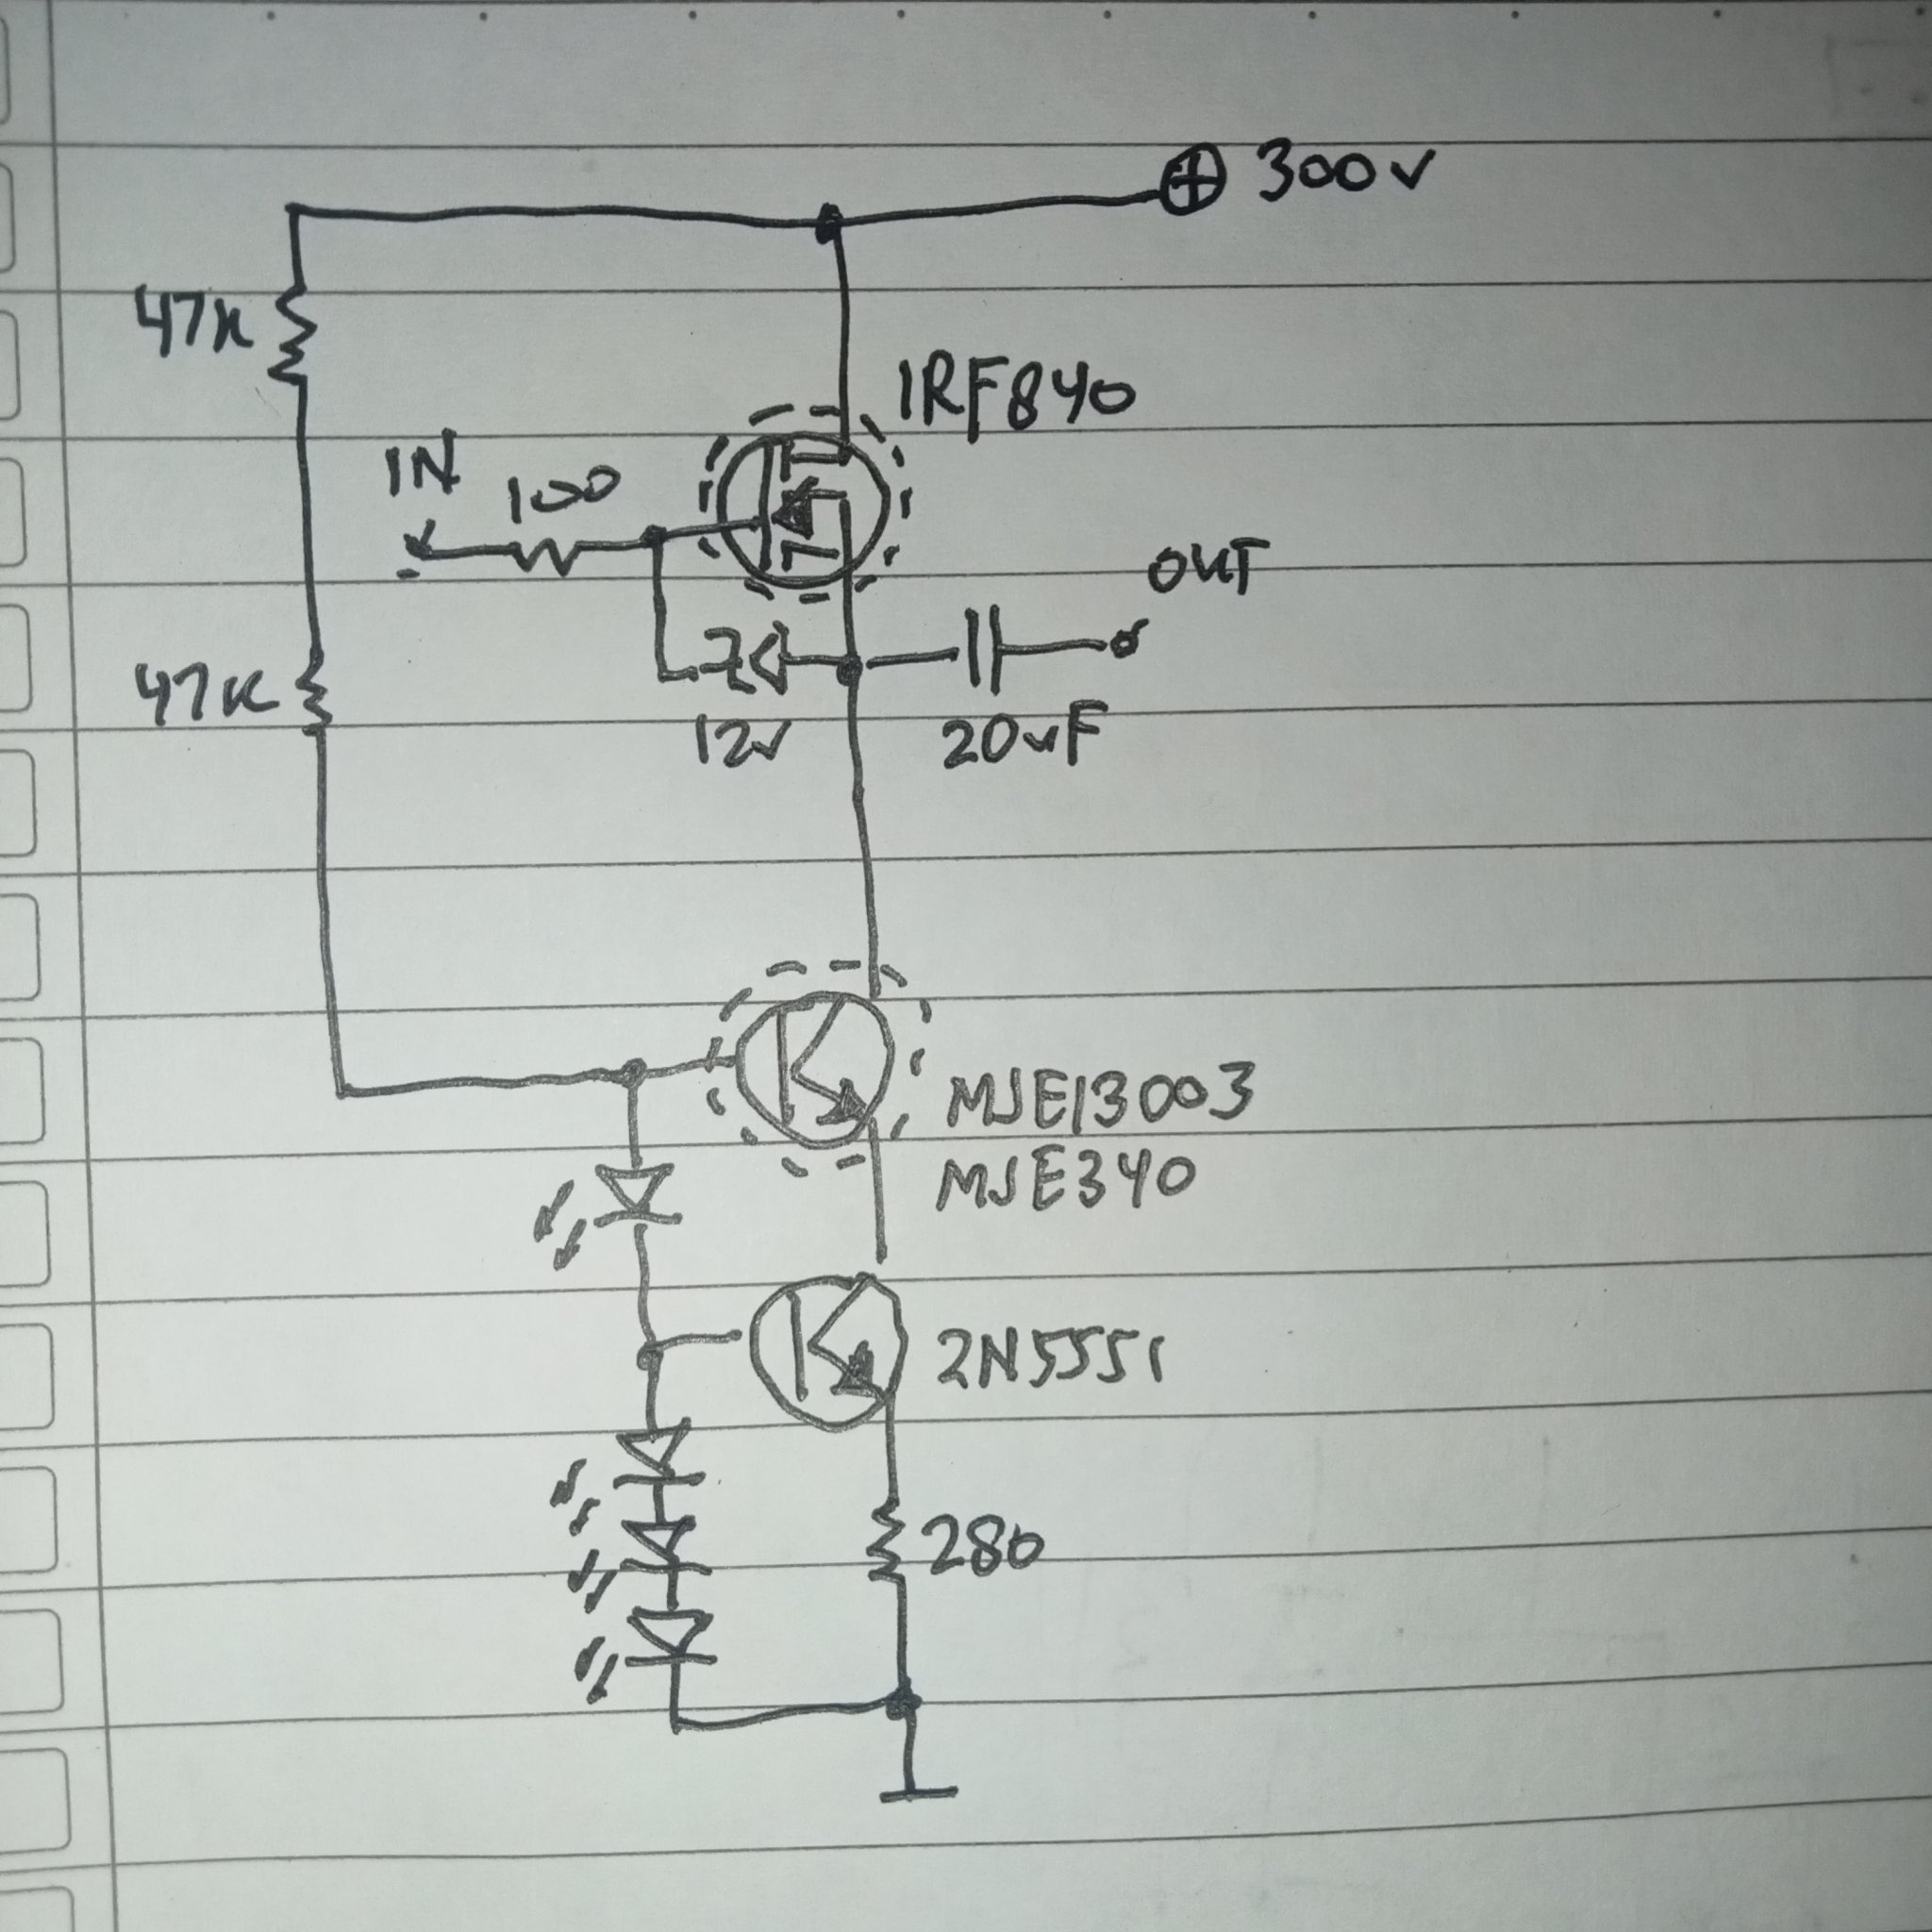 300v
47K
IRF840
IN
100
OUT
47K
12v
20uF
MJE13003
MJE340
2N5551
280